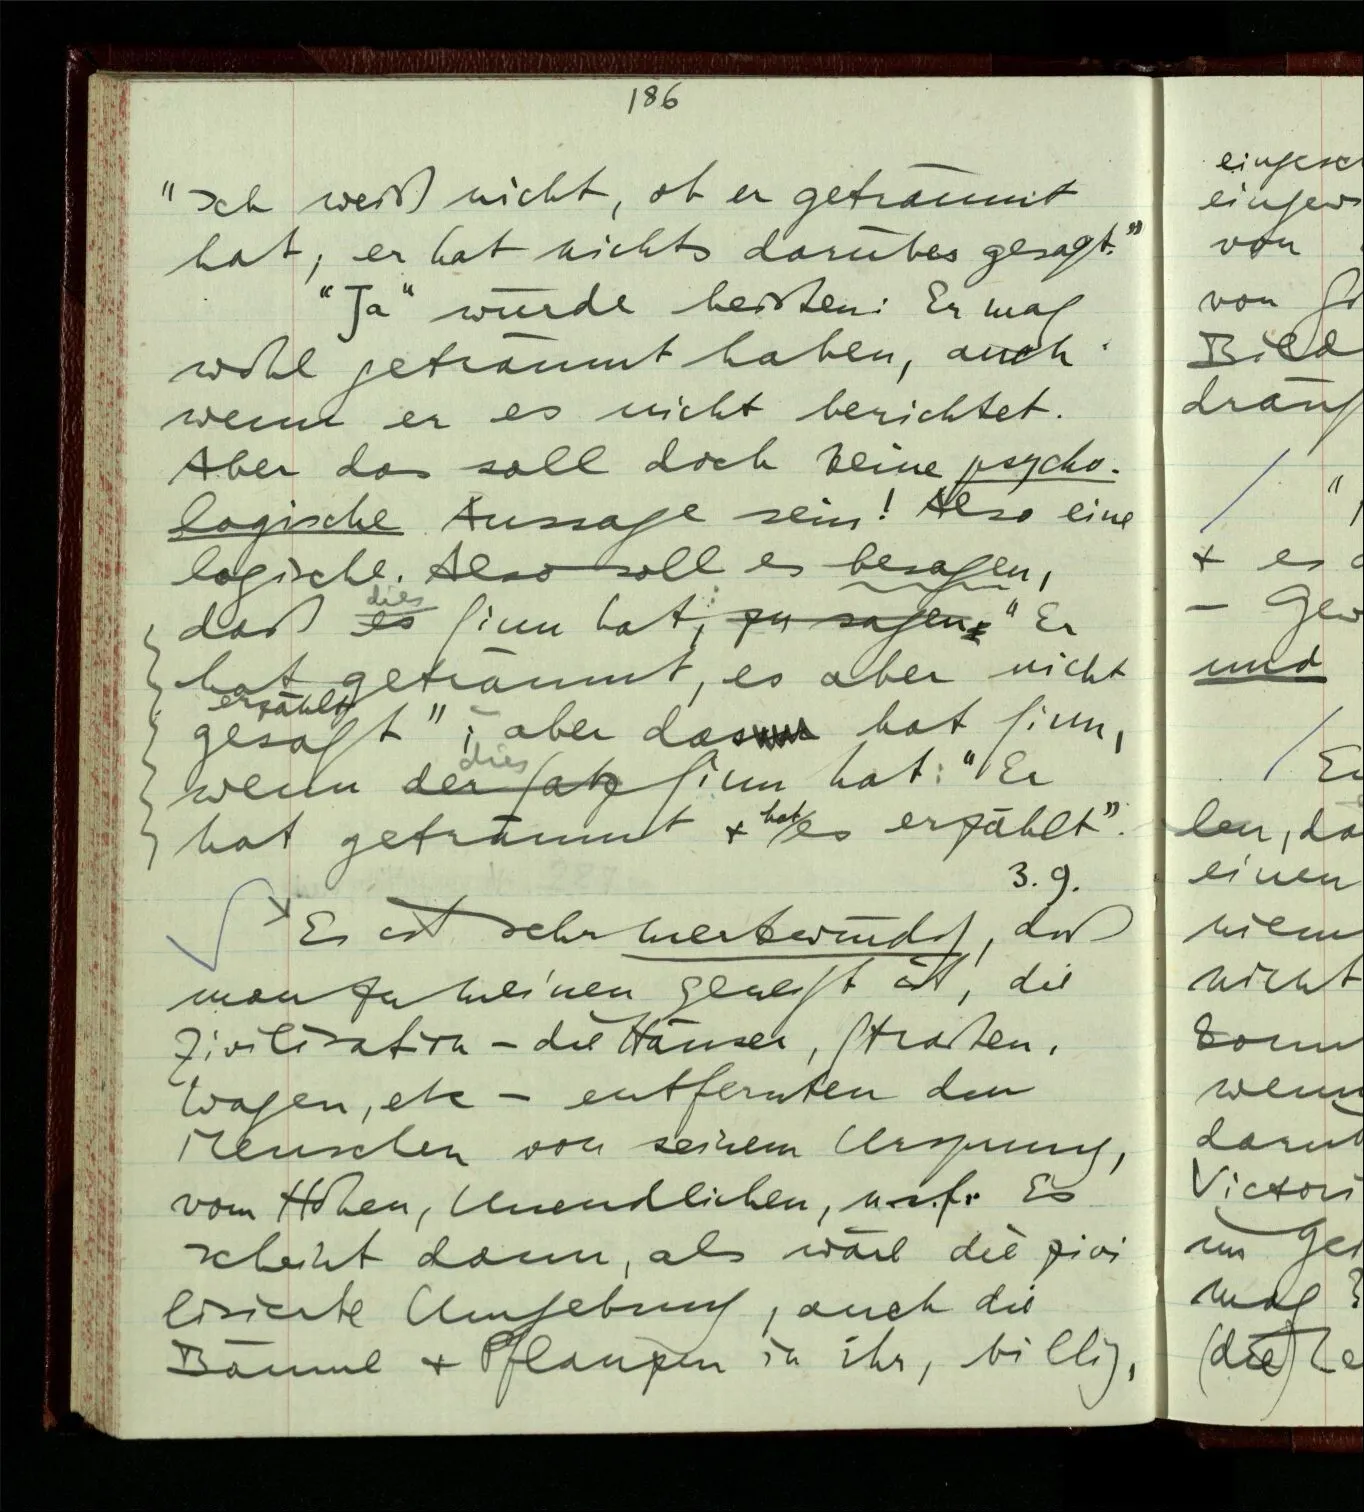 186
"Ich weiß nicht, ob er geträumt
hat; er hat nichts darüber gesagt."
"Ja" würde heißen: Er mag
wohl geträumt haben, auch
wenn er es nicht berichtet.
Aber das soll doch keine psycho-
logische Aussage sein! Also eine
logische. Also soll es besagen,
dies
daß es Sinn hat, zu sagen: "Er
hat geträumt, es aber nicht
erzählt
gesagt"; aber das hat Sinn,
dies
wenn der Satz Sinn hat: "Er
hat geträumt + hat es erzählt".
3.9.
Es ist sehr merkwürdig, daß
man zu meinen geneigt ist, die
Zivilisation – die Häuser, Straßen,
Wagen, etc – entfernten den
Menschen von seinem Ursprung,
vom Hohen, Unendlichen, u.s.f. Es
scheint dann, als wäre die zivi
lisierte Umgebung, auch die
Bäume + Pflanzen in ihr, billig,
von
Bild
"
+ es
–
und
/
einen
nicht
wenn
mag
(die)